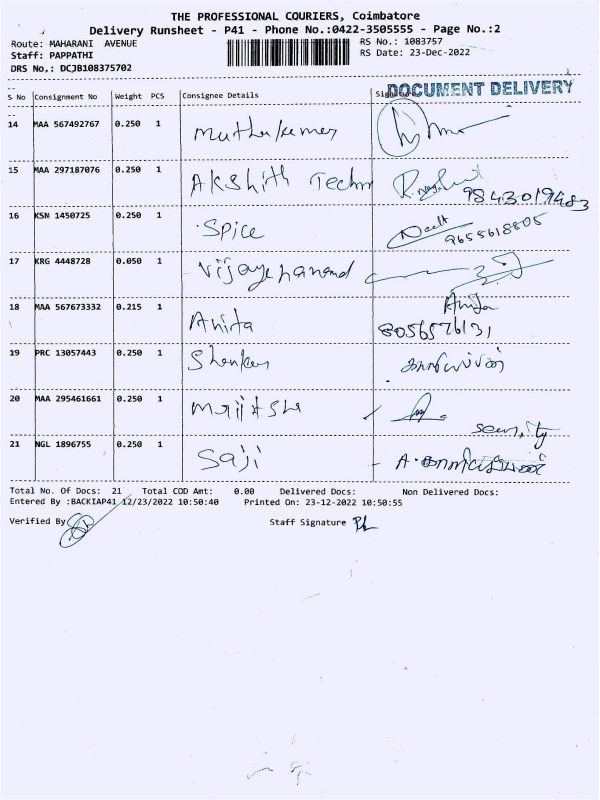 THE PROFESSIONAL COURIERS, Coimbatore
Delivery Runsheet - P41 - Phone No.:0422-3505555 - Page No.:2
Route: MAHARANI AVENUE
RS No.: 1083757
Staff: PAPPATHI
RS Date: 23-Dec-2022
DRS No.: DCJB108375702
DOCUMENT DELIVERY
S No Consignment No Weight PCS Consignee Details Signature
14 MAA 567492767 0.250 1 Muthukumar
15 MAA 297187076 0.250 1 Akshith Techn 9843019483
16 KSN 1450725 0.250 1 Spice 9655618805
17 KRG 4448728 0.050 1 Vijayehanand
18 MAA 567673332 0.215 1 Anita Anita
8056576131
19 PRC 13057443 0.250 1 Shenkar
20 MAA 295461661 0.250 1 security
21 NGL 1896755 0.250 1 Saji
Total No. Of Docs: 21 Total COD Amt: 0.00 Delivered Docs: Non Delivered Docs:
Entered By :BACKIAP41 12/23/2022 10:50:40 Printed On: 23-12-2022 10:50:55
Verified By Staff Signature